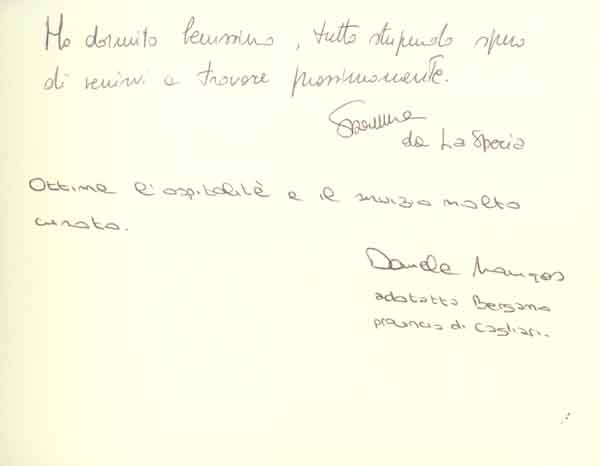 Ho dormito benissimo, tutto stupendo spero
di venirvi a trovare prossimamente.
da La Spezia
Ottima l'ospitalità e il servizio molto
curato.
Daniele
adottato Bergamo
provincia di Cagliari.